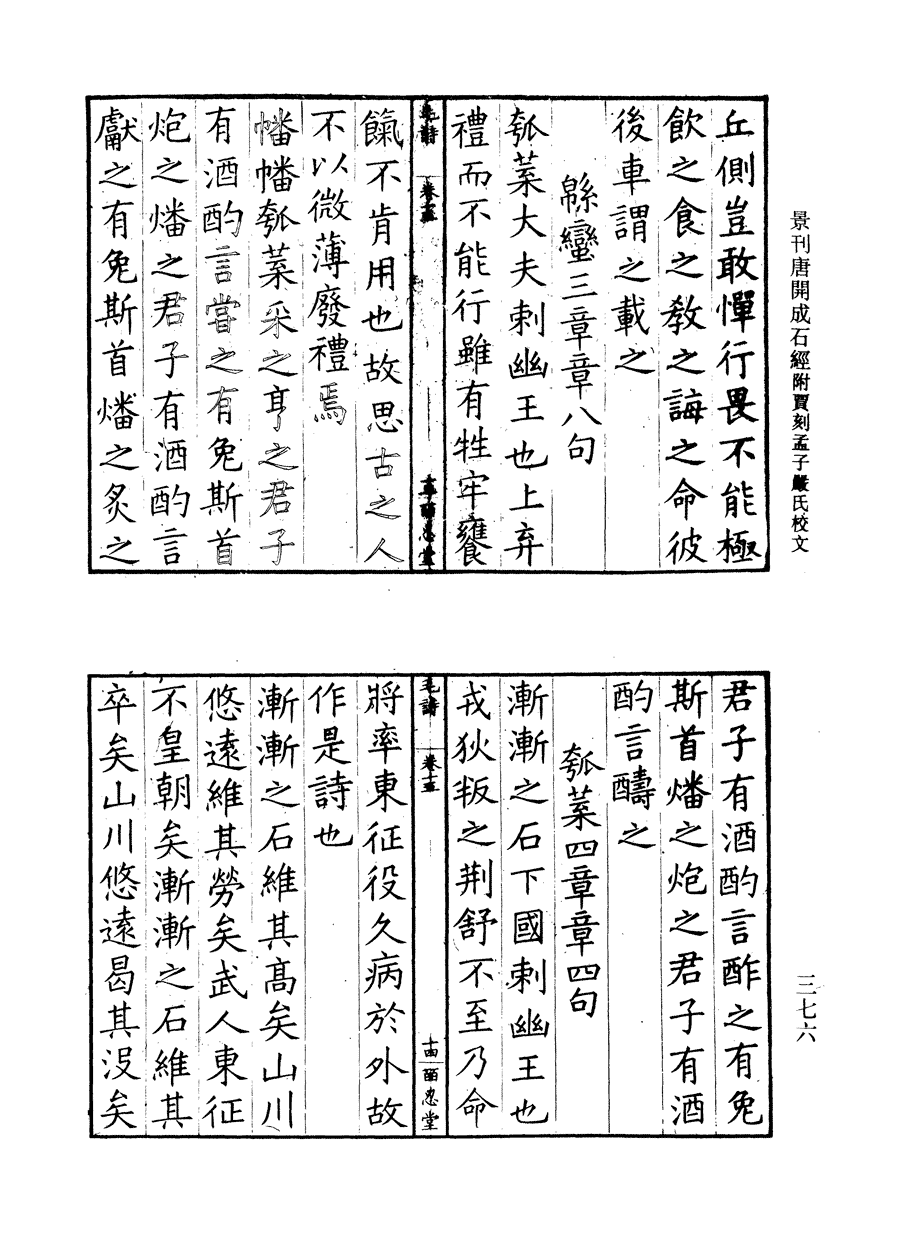 景刊唐開成石經附賈刻孟子嚴氏校文
丘側豈敢憚行畏不能極
飲之食之教之誨之命彼
後車謂之載之
緜蠻三章章八句
瓠葉大夫刺幽王也上弃
禮而不能行雖有牲牢饔
毛詩 卷十五
餼不肯用也故思古之人
不以微薄廢禮焉
幡幡瓠葉采之亨之君子
有酒酌言嘗之有兔斯首
炮之燔之君子有酒酌言
獻之有兔斯首燔之炙之
君子有酒酌言酢之有兔
斯首燔之炮之君子有酒
酌言醻之
瓠葉四章章四句
漸漸之石下國刺幽王也
戎狄叛之荆舒不至乃命
毛詩 卷十五 十四 皕忍堂
將率東征役久病於外故
作是詩也
漸漸之石維其高矣山川
悠遠維其勞矣武人東征
不皇朝矣漸漸之石維其
卒矣山川悠遠曷其没矣
三七六